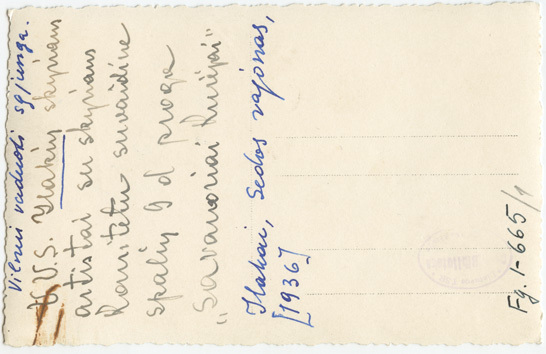 Vilniui vaduoti sąjunga.
V.V.S. Ylakių skyriaus
artistai su skyriaus
Komitetu suvaidinę
spalių 9 d proga
"Savanoriai Kūrėjai"
Ilakai, Sedos rajonas,
[1936]
Fg. 1-665/1